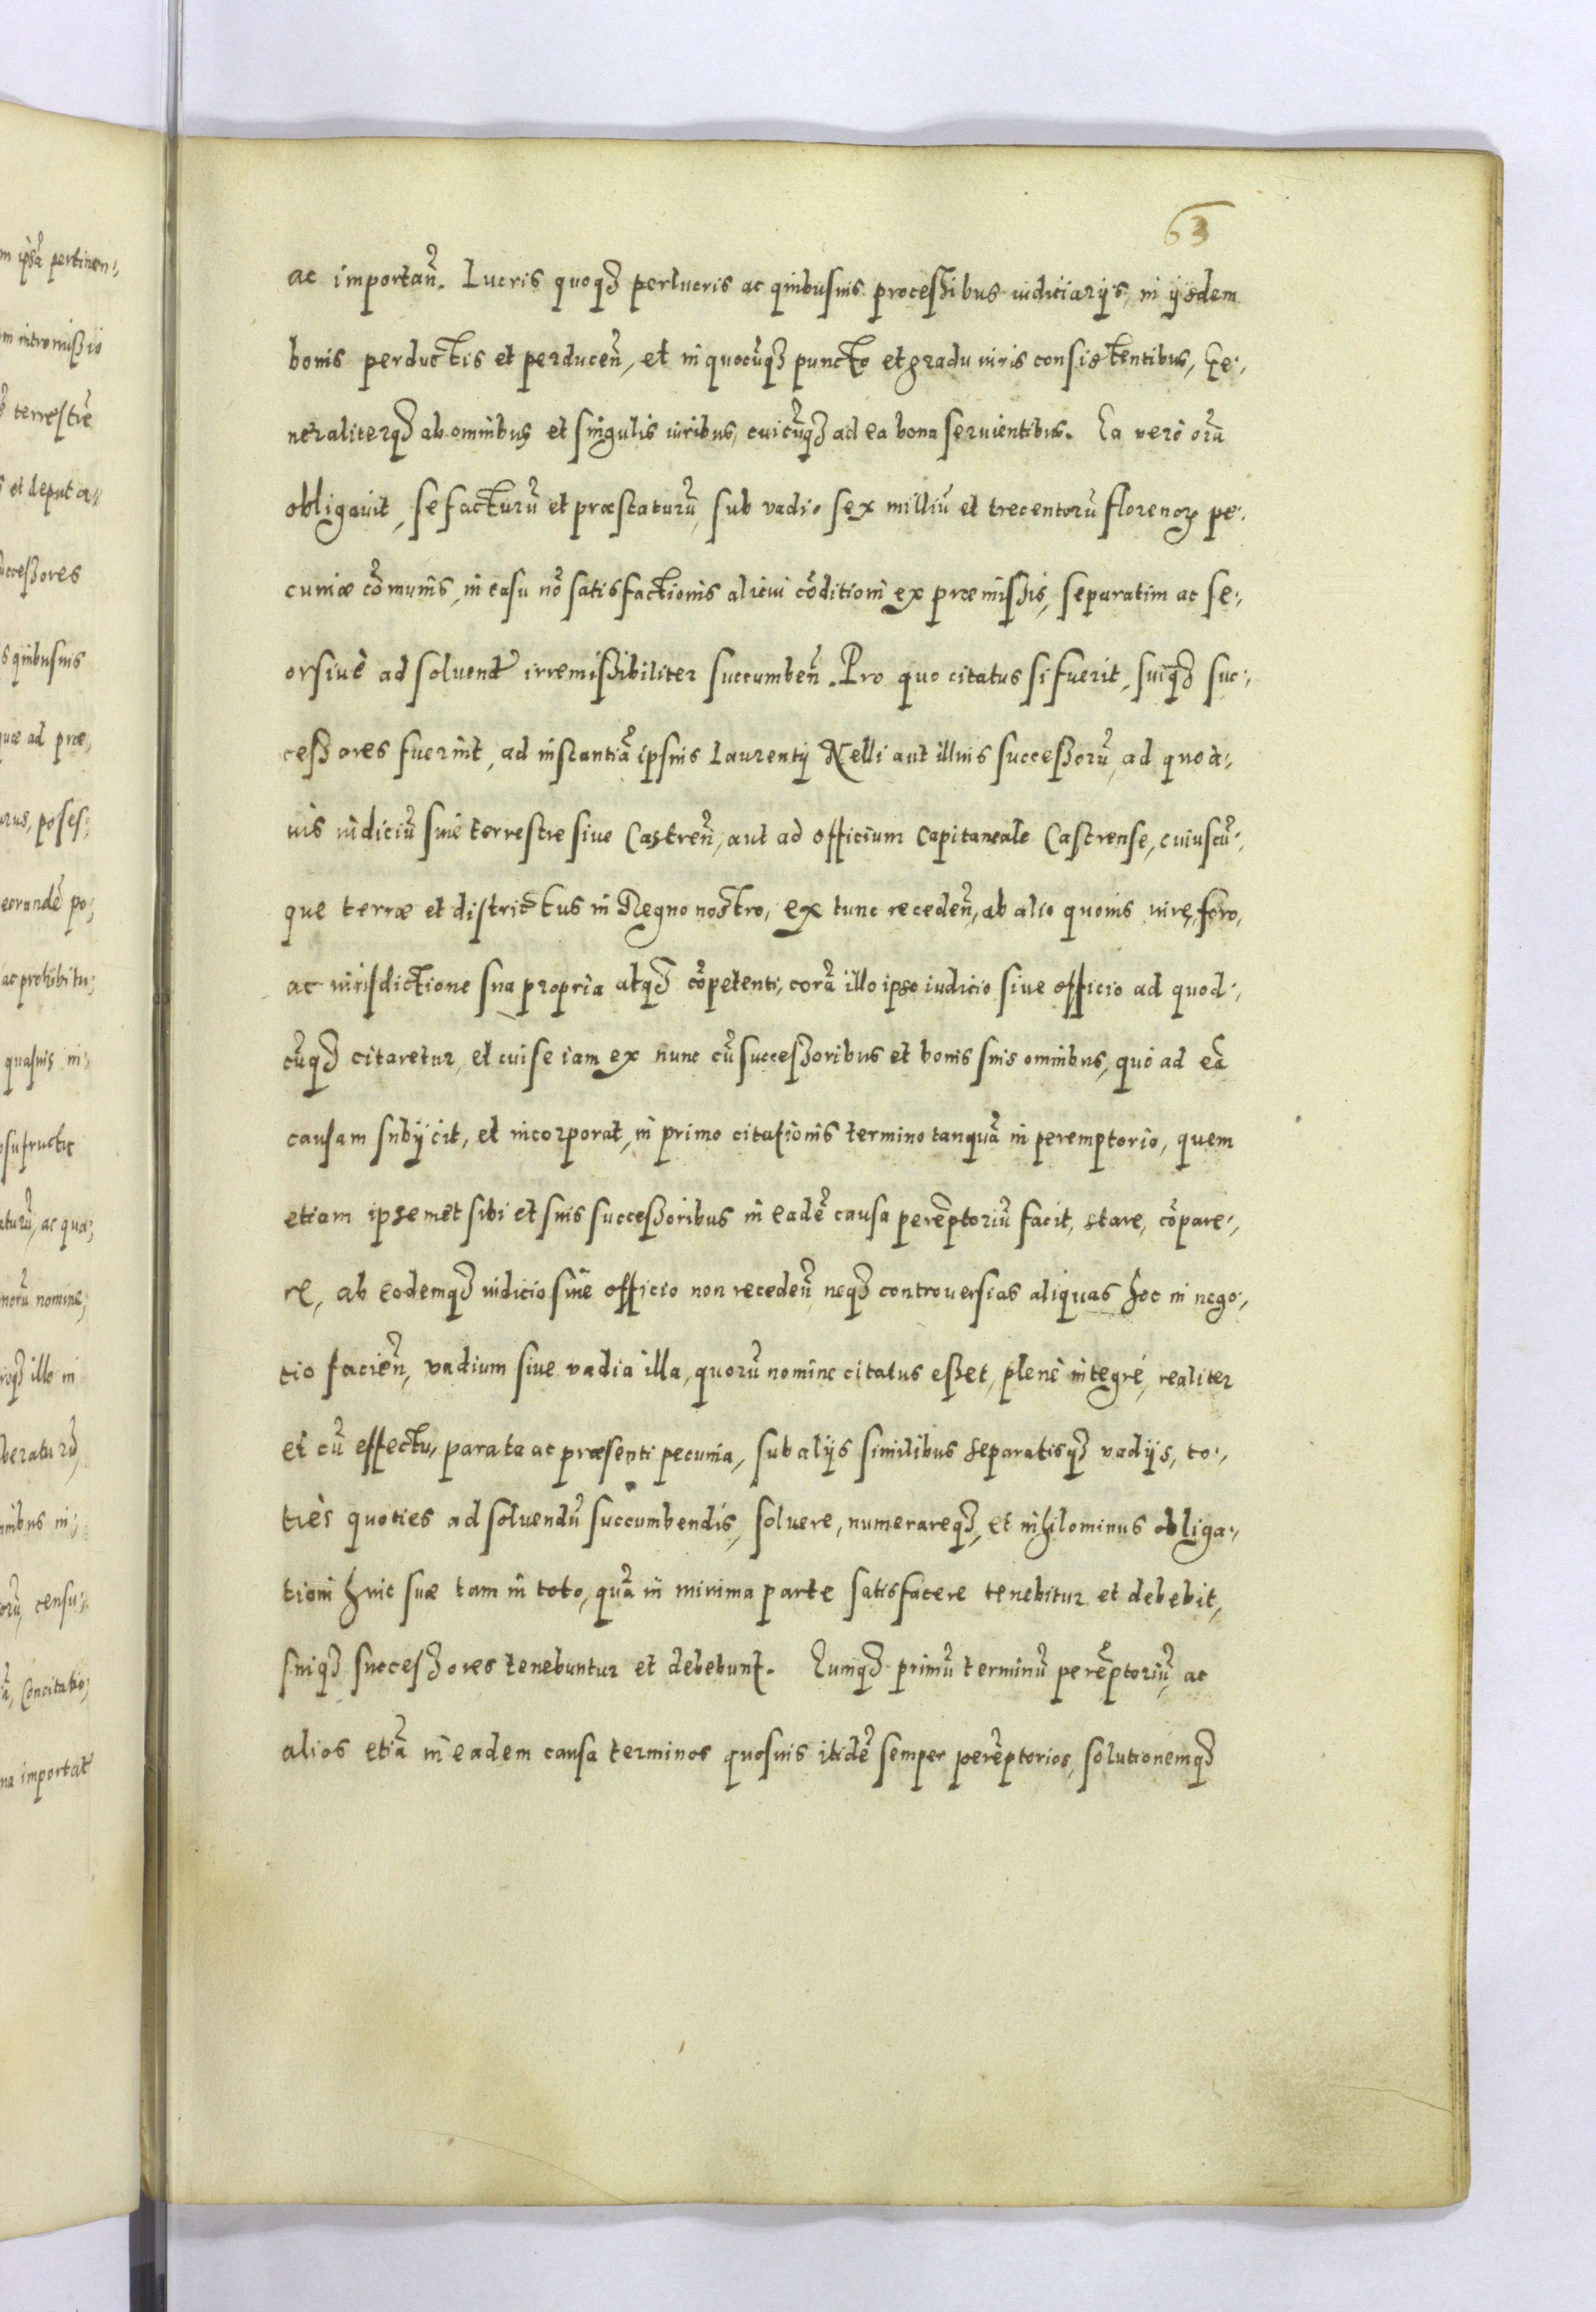 63
ac importan̄. Lucris quoq₃ perlucris ac quibusuis processibus iudiciarijs, in ijsdem
bonis perductis et perducen̄, et in quocūq₃ puncto et gradu iuris consistentibus, Ge⸗
neraliterq₃ ab omnibus et singulis iuribus, cuicūq₃ ad ea bona seruientibus. Ea verò oīa
obligauit, se facturū et præstaturū, sub vadio sex milliū et trecentorū florenoꝝ pe⸗
cuniæ cōmunis, in casu nō satisfactionis alicui cōditioni ex præmissis, separatim ac se⸗
orsiue ad soluend̄ irremissibiliter succumben̄. Pro quo citatus si fuerit, suiq₃ suc⸗
cessores fuerint, ad instantiā ipsius Laurentij Nelli aut illius successorū, ad quod⸗
uis iudiciū siue terrestre siue Castren̄, aut ad officium Capitaneale Castrense, cuiuscū⸗
que terræ et districtus in Regno nostro, ex tunc receden̄, ab alio quouis iure, foro,
ac iurisdictione sua propria atq₃ cōpetenti, corā illo ipso iudicio siue officio ad quod⸗
cūq₃ citaretur, et cui se iam ex nunc cū successoribus et bonis suis omnibus, quò ad eā
causam subijcit, et incorporat, in primo citationis termino tanquā in peremptorio, quem
etiam ipsemet sibi et suis successoribus in eadē causa perēptoriū facit, stare, cōpare⸗
re, ab eodemq₃ iudicio siue officio non receden̄ neq₃ controuersias aliquas hoc in nego⸗
tio facien̄, vadium siue vadia illa, quorū nomine citatus esset, plenè integrè, realiter
et cū effectu, parata ac præsenti pecunia, sub alijs similibus separatisq₃ vadijs, to⸗
ties quoties ad soluendū succumbendis, soluere, numerareq₃, et nihilominus obliga⸗
tioni huic suæ tam in toto, quā in minima parte satisfacere tenebitur et debebit,
suiq₃ successores tenebuntur et debebunt. Eumq₃ primū terminū perēptoriū, ac
alios etiā in eadem causa terminos quosuis itidē semper perēptorios, solutionemq₃